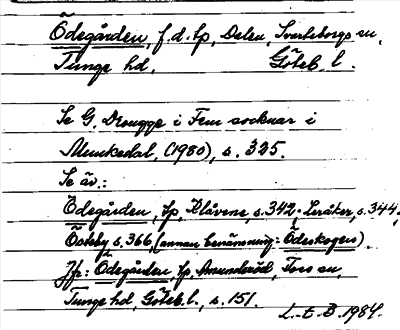 Ödegården, f.d. tp, Delen, Svarteborgs sn,
Tunge hd, Göteb. l.
Se G. Drougge i Fem socknar i
Munkedal (1980), s. 325.
Se äv.:
Ödegården, tp, Klåvene, s. 342; Leråker, s. 344;
Össeby s. 366, (annan benämning: Ödeskogen).
Jfr: Ödegården, tp, Amundröd, Foss sn,
Tunge hd, Göteb. l., s. 151.
L.-E. B. 1984.